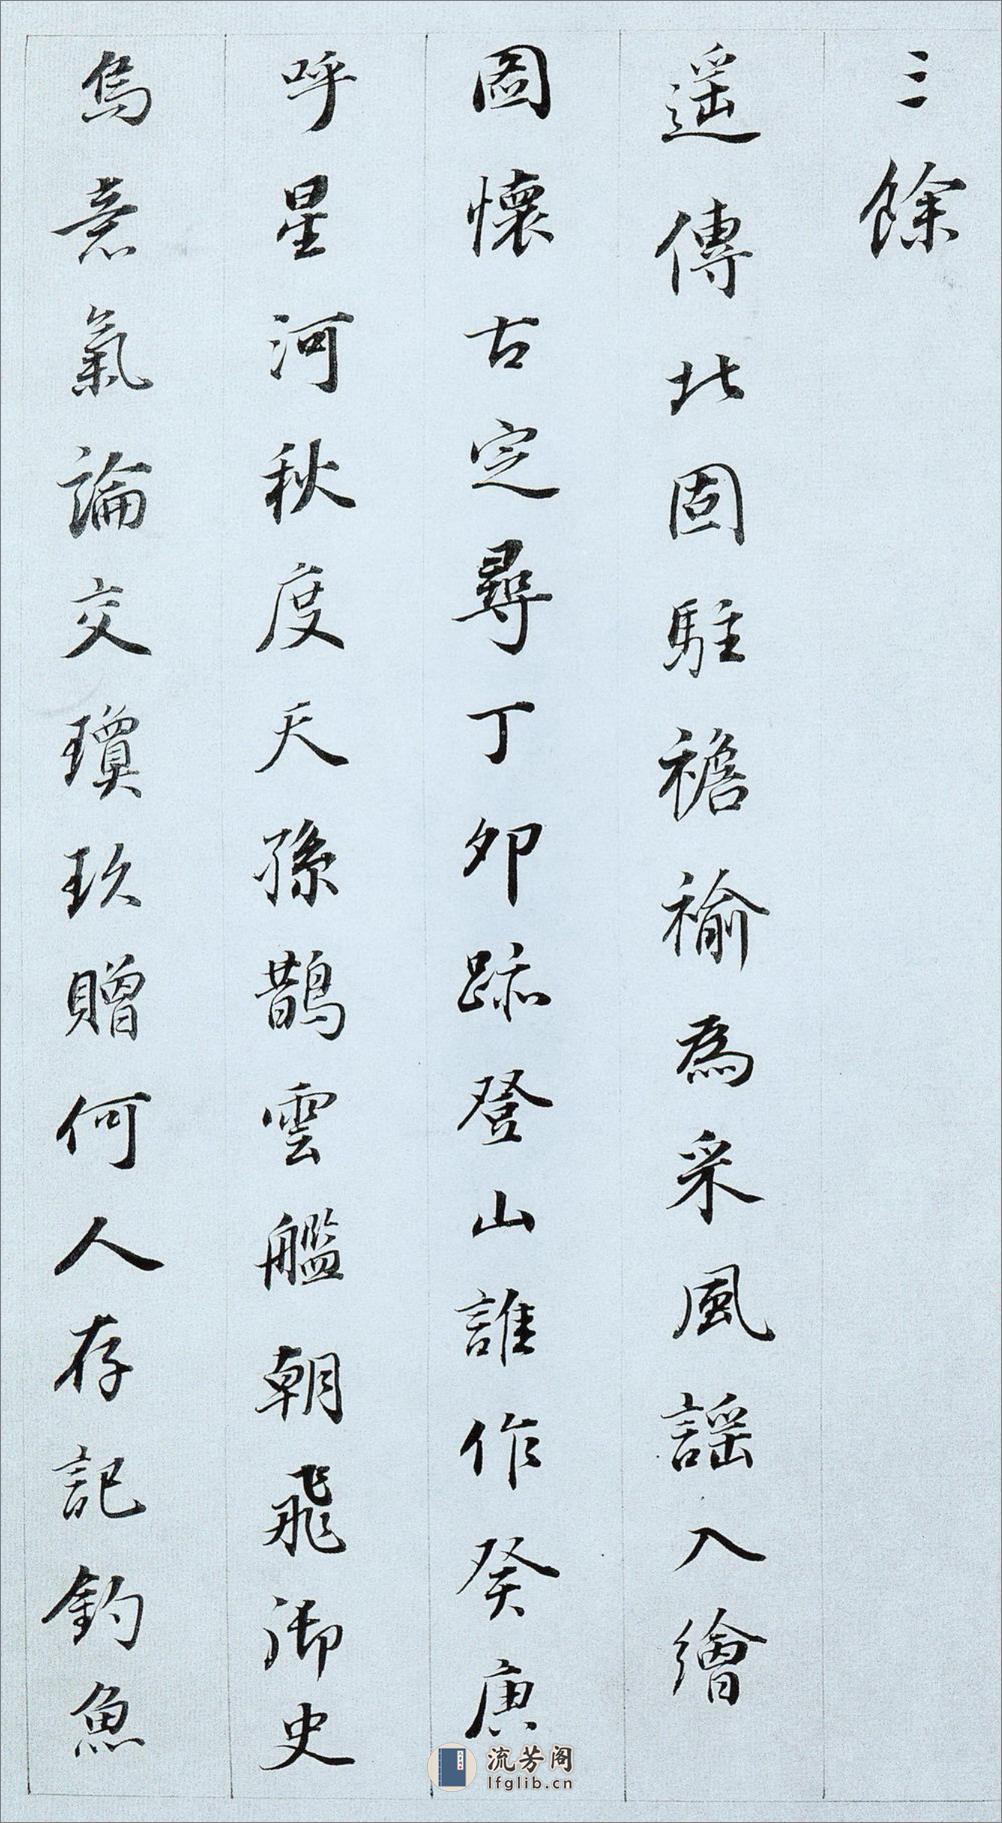 三餘
遥傳北固駐襜褕為采風謡入繪
圖懷古定尋丁卯跡登山誰作癸庚
呼星河秋度天孫鵲雲艦朝飛御史
烏意氣論交瓊玖贈何人存記釣魚
流芳阁
lfglib.cn